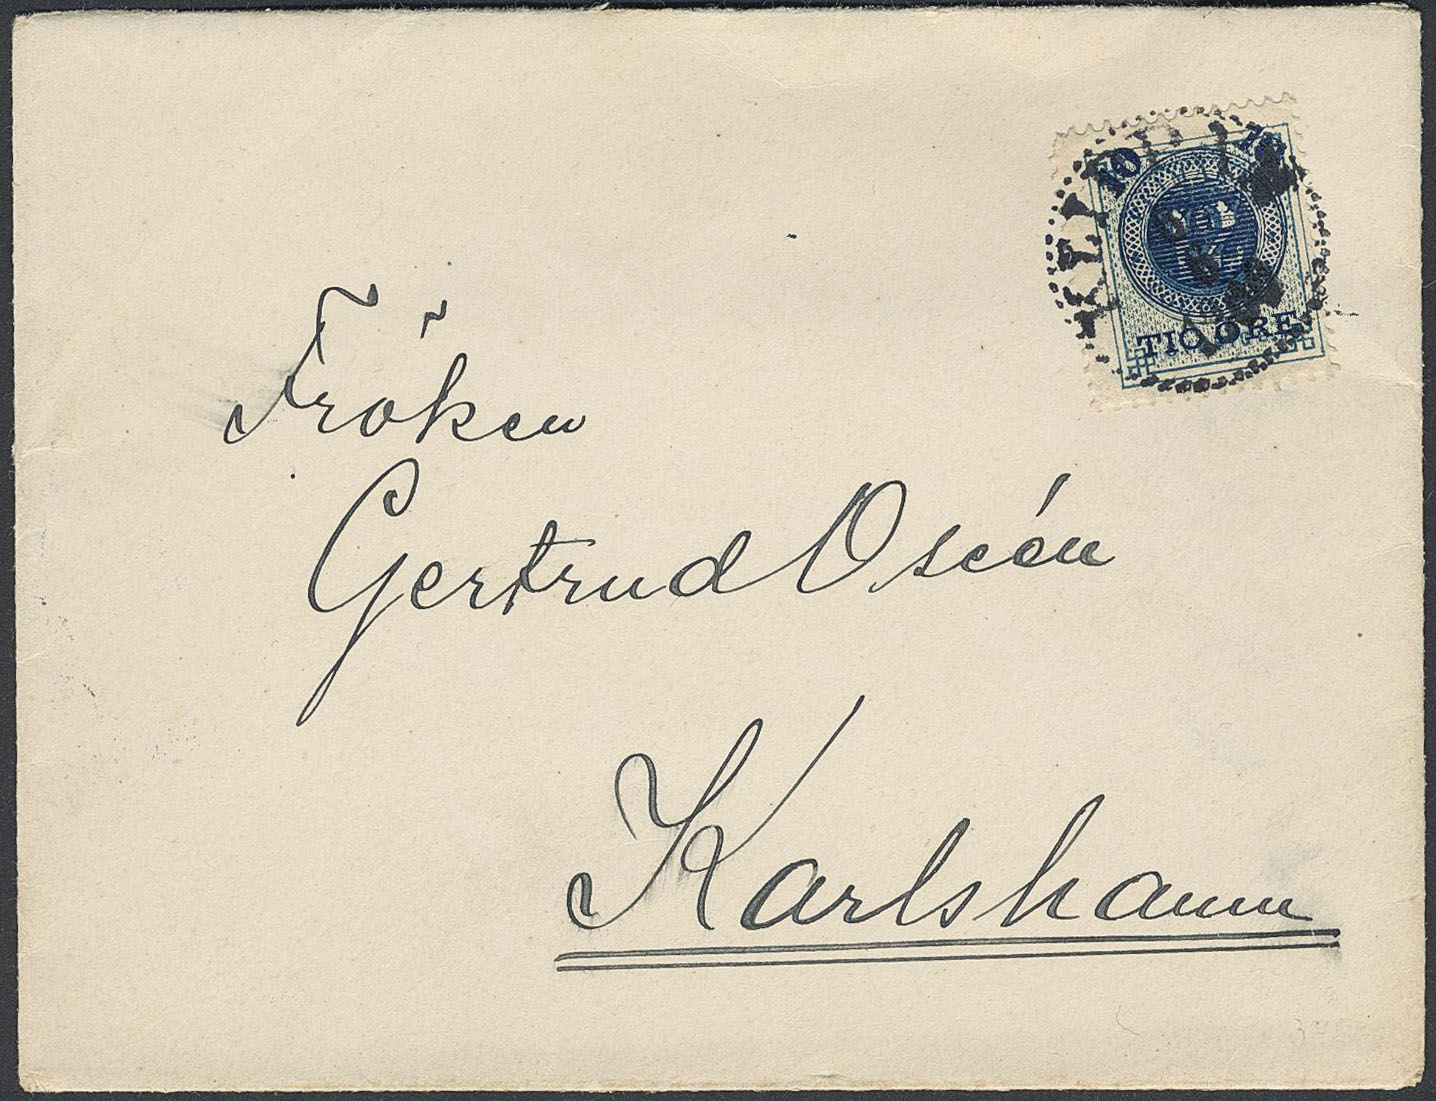 10 10
TIO ÖRE
Fröken
Gertrud Oscén
Karlshamn